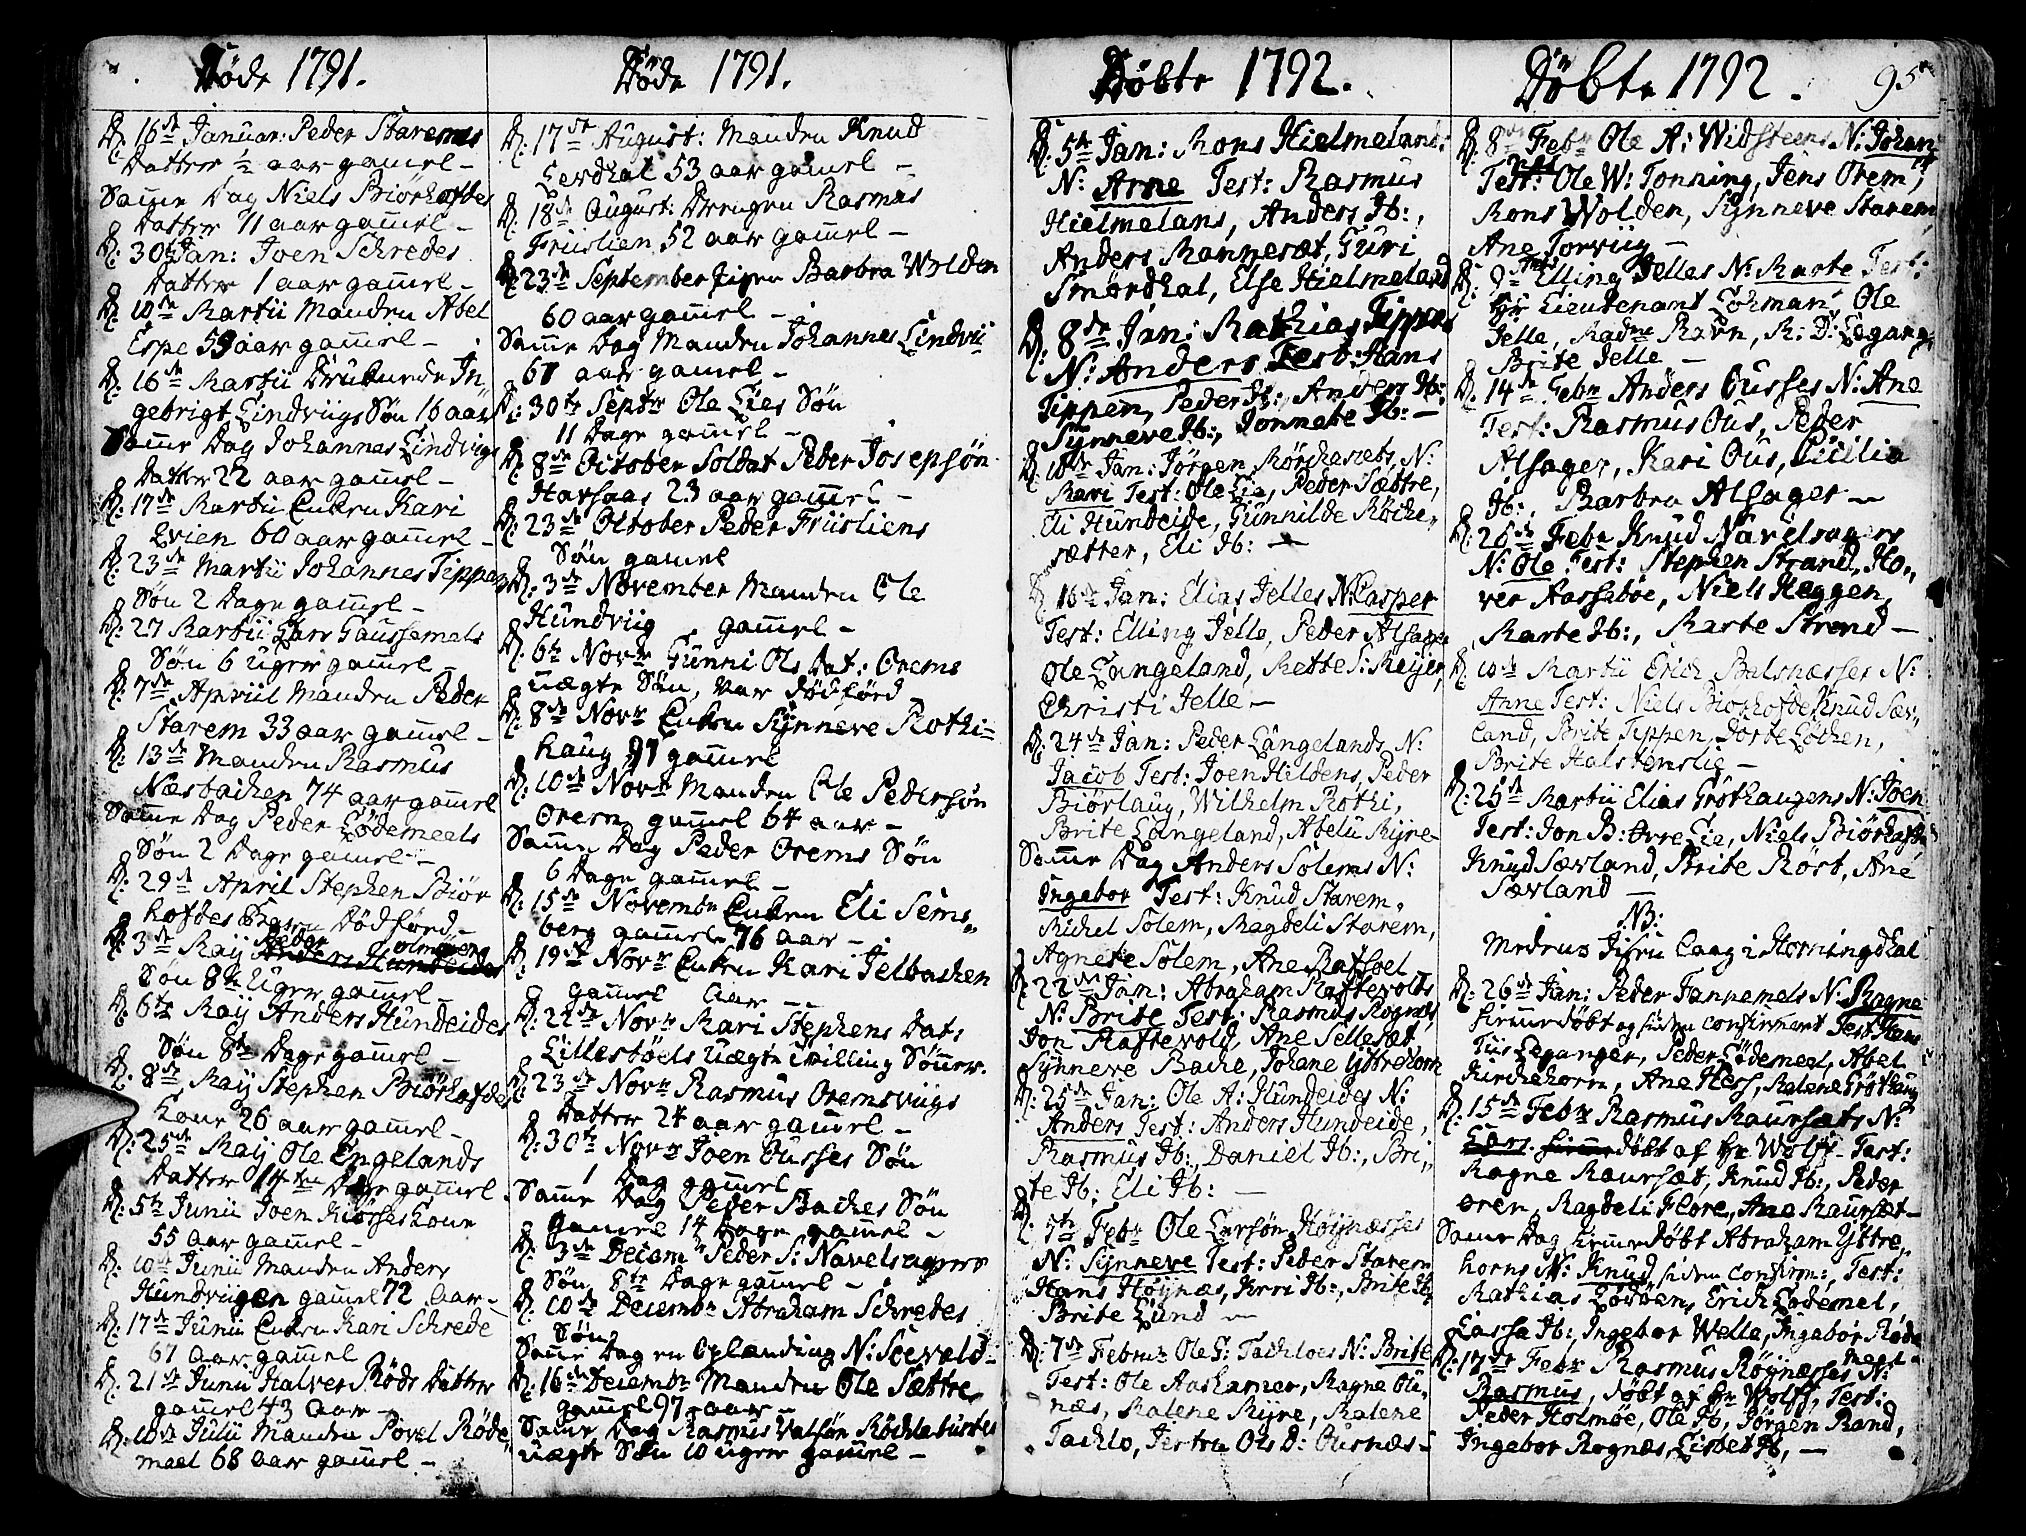 Døde 1791.
D: 16de Januar: Peder Starems
Datter ½ aar gamel –
Samme Dag Niels Biørhofdes
Datter 11 aar gamel –
D: 30te Jan: Joen Schredes
Datter 1 aar gamel –
D: 10de Martii Manden Abel
Espe 59 aar gamel –
D: 16de Martii Druknede In
gebrigt Lindviigs Søn 16 aar
Samme Dag Johannes Lindviigs
Datter 22 aar gamel –
D: 17de Martii Enken Kari
Evien 60 aar gamel –
D: 23de Martii Johannes Tippens
Søn 2 Dage gamel –
D: 27 Martii Lars Gaussemels
Søn 6 Uger gamel –
D: 7de Apriil Manden Peder
Starem 33 aar gamel –
D: 13de Manden Rasmus
Næsbachen 74 aar gamel
Samme Dag Peder Lødemeels
Søn 2 Dage gamel –
D: 29de April Stephen Biør
hofdes Barn Dødførd –
D: 3de Maij Peder Holmøens
Søn 8te Uger gamel –
D: 6te Maij Anders Hundeides
Søn 8te Dage gamel –
D: 8de Maij Stephen Biørhofdes
Kone 26 aar gamel –
D: 25de Maij Ole Engelands
Datter 14ten Dage gamel
D: 5te Junii Joen Kiøsses Kone
55 aar gamel –
D: 10de Junii Manden Anders
Hundviigen gamel 72 aar –
D: 17de Junii Enken Kari Schrede
67 aar gamel
D: 21de Junii Halver Røds Datter
gamel 43 aar –
D: 10de Julii Manden Povel Røde
mael 68 aar gamel –
Døde 1791.
D: 17de August: Manden Knud
Lerdhal 53 aar gamel –
D: 18de August: Drengen Rasmus
Friislien 52 aar gamel –
D: 23de September Pigen Barbra Wolden
60 aar gamel –
Samme Dag Manden Johannes Lindvii
67 aar gamel –
D: 30te Septr Ole Lies Søn
11 Dage gamel –
D: 8de October Soldat Peder Josepsøn
Harsaas 23 aar gamel –
D: 23de October Peder Friisliens
Søn gamel
D: 3de November Manden Ole
Hundviig gamel –
D: 6te Novr Gunni Ols Dat: Orems
uægte Søn, var Dødførd
D: 8de Novr Enken Synneve Rothi=
haug 91 gamel
D: 10de Novr Manden Ole Pedersøn
Orem gamel 64 aar –
Samme Dag Peder Orems Søn
6 Dage gamel –
D: 15de Novembr Enken Eli Sems„
berg gamel 76 aar –
D: 19de Novr Enken Kari Jelbachen
gamel aar –
D: 22de Novr Mari Stephens Dat:
Lillestøels uægte Tvilling Sønner
D: 23de Novr Rasmus Oremsviigs
Datter 24 aar gamel –
D: 30te Novr Joen Ousses Søn
1 Dag gamel
Samme Dag Peder Baches Søn
gamel 14 Dage gamel –
D: 3de Decembr Peder S: Navelsagers
Søn 8te Dage gamel –
D: 10de Decembr Abraham Schredes
Søn
Samme Dag en Oplænding N: Soevold
D: 16de Decembr Manden Ole Sættre
gamel 97 aar –
Samme Dag Rasmus Valsøn Røchlabustes
uægte Søn 10 uger gamel –
Døbte 1792.
D: 5te Jan: Mons Hielmelands
N: Arne Test: Rasmus
Hielmelans, Anders Ib:,
Anders Mannesæt, Guri
Smørdhal, Else Hielmeland
D: 8de Jan: Mathias Tippens
N: Anders Test: Hans
Tippen, Peder Ib:, Anders Ib:
Synneve Ib:, Jonnete Ib: –
D: 10de Jan: Jørgen Mørchesets, N:
Mari Test: Ole Lie, Peder Sættre,
Eli Hundeide, Gunnilde Røche„
sætter, Eli Ib: –
D: 16de Jan: Elias Jelles N: Casper
Test: Elling Jelle, Peder Alsager
Ole Langeland, Mette S: Meijer,
Christi Jelle –
D: 24de Jan: Peder Langelands, N:
Jacob Test: Joen Hildens, Peder
Biørlaug, Wilhelm Rothi,
Brite Langeland, Abelu Myre –
Samme Dag Anders Solems N:
Ingebor Test: Knud Starem,
Michel Solem, Magdeli Starem,
Agnete Solem, Ane Raffoel
D: 22de Jan: Abraham Raftevolds
N: Brite Test: Rasmus Rognæs,
Jon Raftevold, Ane Sellesæt,
Synneve Bache, Johane Yttrehorn
D: 25de Jan: Ole A: Hundeides N:
Anders Test: Anders Hundeide,
Rasmus Ib:, Daniel Ib:, Bri„
te Ib: Eli Ib: –
D: 5te Febr Ole Larsøn Høijnæsses
N: Synneve Test: Peder Starem
Hans Høijnæs, Kerri Ib:, Brite Ib,
Brite Lund –
D: 7de Februr Ole G: Tachloes N: Brite
Test: Ole Aashamer, Magne Ou„
næs, Malene Myre, Malene
Tachlo, Jertru Ols D: Ournæs –
Døbte 1792.
95
D: 8de Febr Ole A: Widsteens N: Johan
Test: Ole W: Tonning, Jens Orem,
Mons Wolden, Synneve Starem
Ane Torviig –
D: 9de Elling Jelles N: Marte Test:
Hr Lieutenant Lohman, Ole
Jelle, Madme Ravn, M: D: Legang
Brite Jelle –
D: 14de Febr Anders Ousses N: Ane
Test: Rasmus Ous, Peder
Alsager, Kari Ous, Cicilia
Ib:, Barbra Alsager –
D: 26de Febr Knud Navelsagers
N: Ole Test: Stephen Strand, Ho„
ver Aassebøe, Niels Heggen,
Marte Ib:, Marte Strand –
D: 10de Martii Erich Balsnæsses N:
Anne Test: Niels Biorhofde, Knud Sær„
land, Brite Tippen, Dorte Løchen,
Brite Halstenslie –
D: 25de Martii Elias Grøthaugens N: Joen
Test: Jon B: Øvre Lie, Niels Biørhofde
Knud Særland, Brite Mørt, Ane
Særland –
NB:
Medens Jisen laag i Horningdhal
D: 26de Jan: Peder Tannemels N: Magne
hiemmedøbt og siden confirmert Test: Hans
Tiis Leganger, Peder Lødemeel, Abel
Kirchehorn, Ane Hess, Malene Grøthaug
D: 15de Febr Rasmus Maursæts N:
Lars hiemmedøbt af Hr Wolff – Test:
Magne Maursæt, Knud Ib:, Peder
Oren, Magdeli Flore, Ane Maursæt –
Samme Dag hiemmedøbt Abraham Yttre„
horns N: Knud siden confirm:, Test:
Mathias Lødøen, Erich Lødemel,
Lassa Ib:, Ingebor Wella, Ingebor Røde
mael –
D: 17de Febr Rasmus Røijnæsses N:
Rasmus, døbt af Hr Wolff, Test:
Peder Holmøe, Ole Ib, Jørgen Rand,
Ingebor Rognæs, Lisbet Ib, –